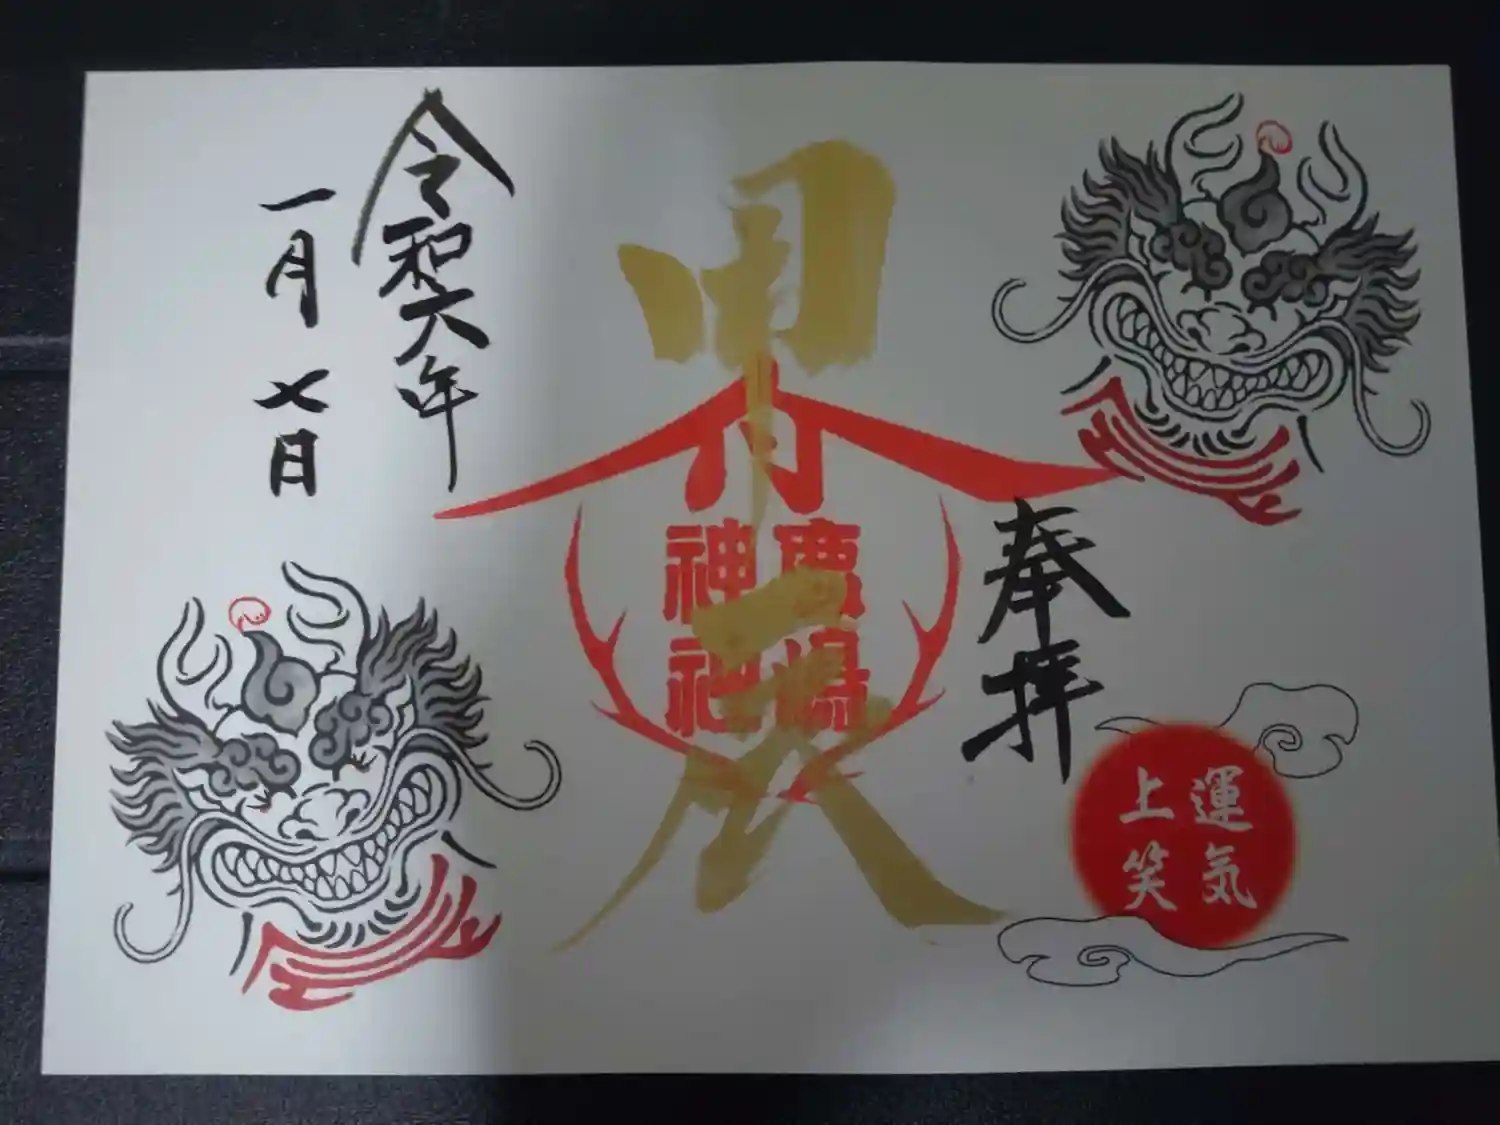 奉拝
運気
上笑
甲辰
鹿嶋
神社
令和六年
一月七日